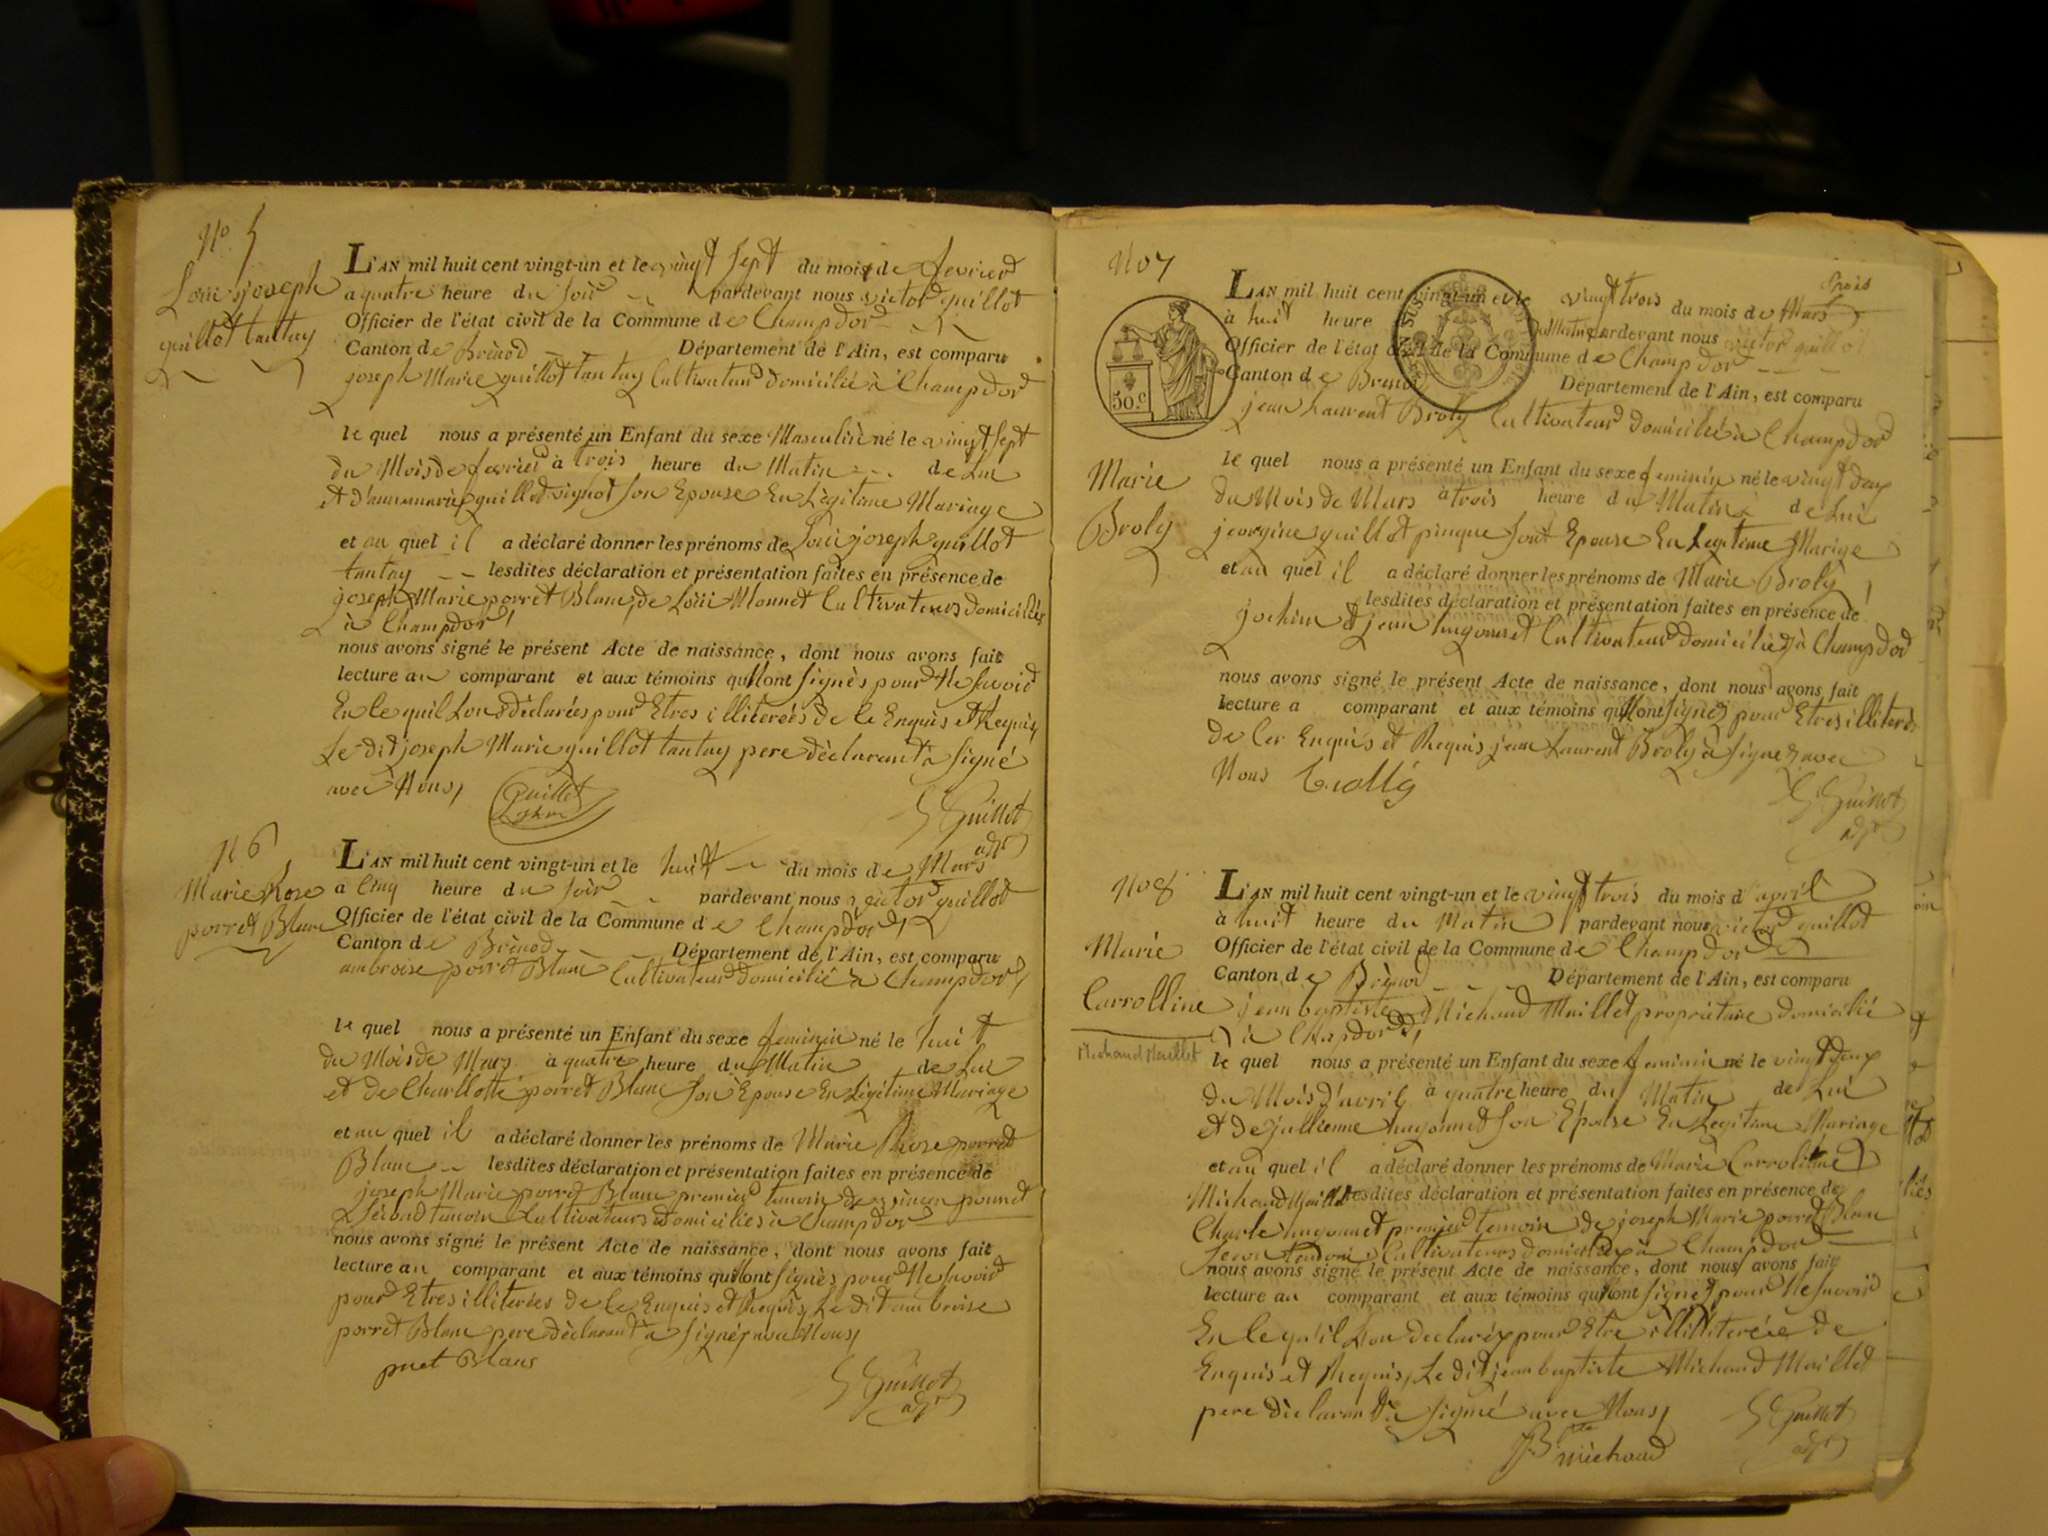 No. 5
Loüis joseph
guillot tantay
L'AN mil huit cent vingt-un et le vingt sept du mois de fevrier
a quatre heure du soir pardevant nous victor guillot
Officier de l'état civil de la Commune de Champdor
Canton de Brénod Département de l'Ain, est comparu
joseph Marie guillot tantay Cultivateur domicilié à Champdor
le quel nous a présenté un Enfant du sexe Masculin né le vingt sept
du Mois de fevrier à trois heure du Matin de Lui
et d'annemarie guillot vignot son Epouse En Légitime Mariage
et au quel il a déclaré donner les prénoms de Loüi joseph guillot
tantay lesdites déclaration et présentation faites en présence de
joseph Marie porret Blanc, de Loüi Monnet Cultivateurs domiciliés
à Champdor
nous avons signé le présent Acte de naissance, dont nous avons fait
lecture au comparant et aux témoins qui n'ont signés pour Ne savoir
En le quil Lons déclarés pour Etres illiterées de le Enquis et Requis,
Le dit joseph Marie guillot tantay pere déclarant à signé
avec Nous,
Guillot
G Guillot
adjt
N 6
Marie Rose
porret Blanc
L'AN mil huit cent vingt-un et le huit du mois de Mars
a Cinq heure du soir pardevant nous victor guillot
Officier de l'état civil de la Commune de Champdor
Canton de Brénod Département de l'Ain, est comparu
ambroise porret Blanc Cultivateur domicilié à Champdor
le quel nous a présenté un Enfant du sexe feminin né le huit
du Mois de Mars à quatre heure du Matin de Lui
et de Charllotte porret Blanc son Epouse En Légitime Mariage
et au quel il a déclaré donner les prénoms de Marie Rose porret
Blanc lesdites déclaration et présentation faites en présence de
joseph Marie porret Blanc premier temoin de
Second temoin Cultivateurs domiciliés à Champdor
nous avons signé le présent Acte de naissance, dont nous avons fait
lecture au comparant et aux témoins qui n'ont signés pour Ne savoir
pour Etres illiterées de le Enquis et Requis, Le dit ambroise
porret Blanc pere déclarant à signé avec Nous,
puet Blanc
G Guillot
adjt
No 7
Marie
Broly
50.c
L'AN mil huit cent vingt-un et le vingt trois du mois de Mars
à huit heure du Matin pardevant nous victor guillot
Officier de l'état civil de la Commune de Champdor
Canton de Brénod Département de l'Ain, est comparu
jean Laurent Broly Cultivateur domicilié à Champdor
le quel nous a présenté un Enfant du sexe feminin né le vingt deux
du Mois de Mars à trois heure du Matin de Lui
jeorgine guillot pinque sont Epouse En Legiteme Marige
et au quel il a déclaré donner les prénoms de Marie Broly
lesdites déclaration et présentation faites en présence de
jochim et jean hugonnet Cultivateur domiciliés à Champdor
nous avons signé le présent Acte de naissance, dont nous avons fait
lecture a comparant et aux témoins qui n'ont signés pour Etres illiterés
de Cer Enquis et Requis jean Laurent Broly à signez avec
Nous
G Guillot
adjt
No 8
Marie
Carrolline
Michaud Maillet
L'AN mil huit cent vingt-un et le vingt trois du mois d'avril
à huit heure du Matin pardevant nous victor guillot
Officier de l'état civil de la Commune de Champdor
Canton de Brénod Département de l'Ain, est comparu
jean baptiste Michaud Maillet propriétaire domicilié
à Chapdor
le quel nous a présenté un Enfant du sexe feminin né le vingt deux
du Mois d'avril à quatre heure du Matin de Lui
et de jullienne hugonnet son Epouse En Legitime Mariage
et au quel il a déclaré donner les prénoms de Marie Carroline
Michaud Maillet lesdites déclaration et présentation faites en présence de
Charle hugonnet premier temoin de joseph Marie porret Blanc
Cultivateurs domiciliés à Champdor
nous avons signé le présent Acte de naissance, dont nous avons fait
lecture au comparant et aux témoins qui n'ont signés pour Ne savoir
En le qu'il Lon declaréx pour Etre illiterée de
Enquis et Requis, Le dit jean baptiste Michaud Maillet
pere déclarant à signé avec Nous,
G Guillot
adjt
JBte michaud